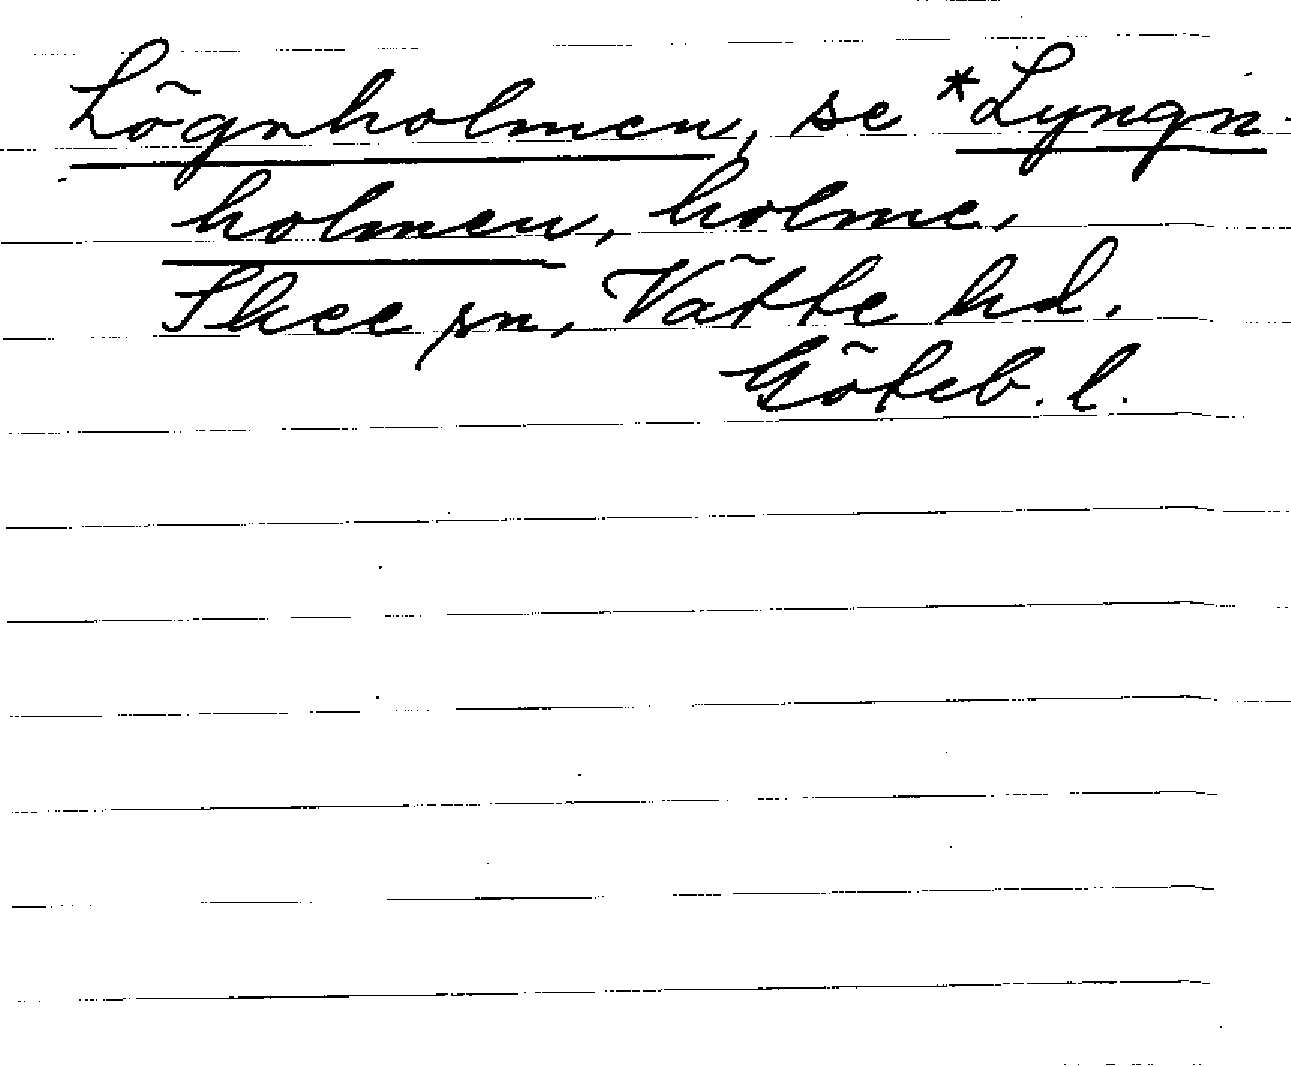 Lögnholmen, se *Lyngn-
holmen, holme,
Skee sn, Vätte hd.
Göteb. l.